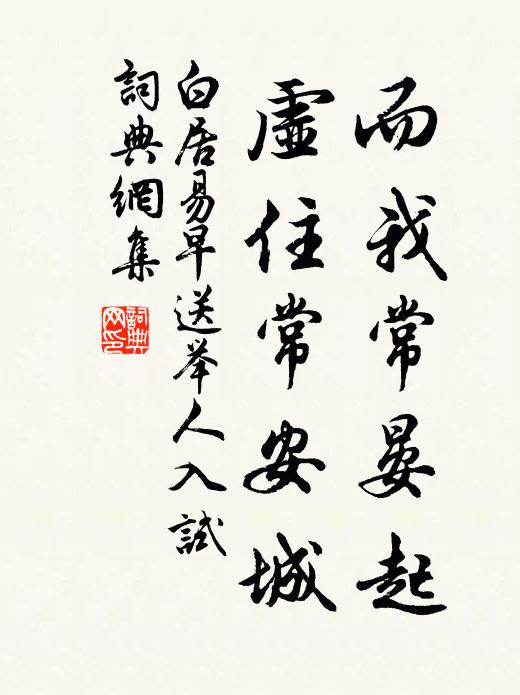 而我常晏起
虛住常安城
白居易早送举人入試
詞典網集
詞典
网印